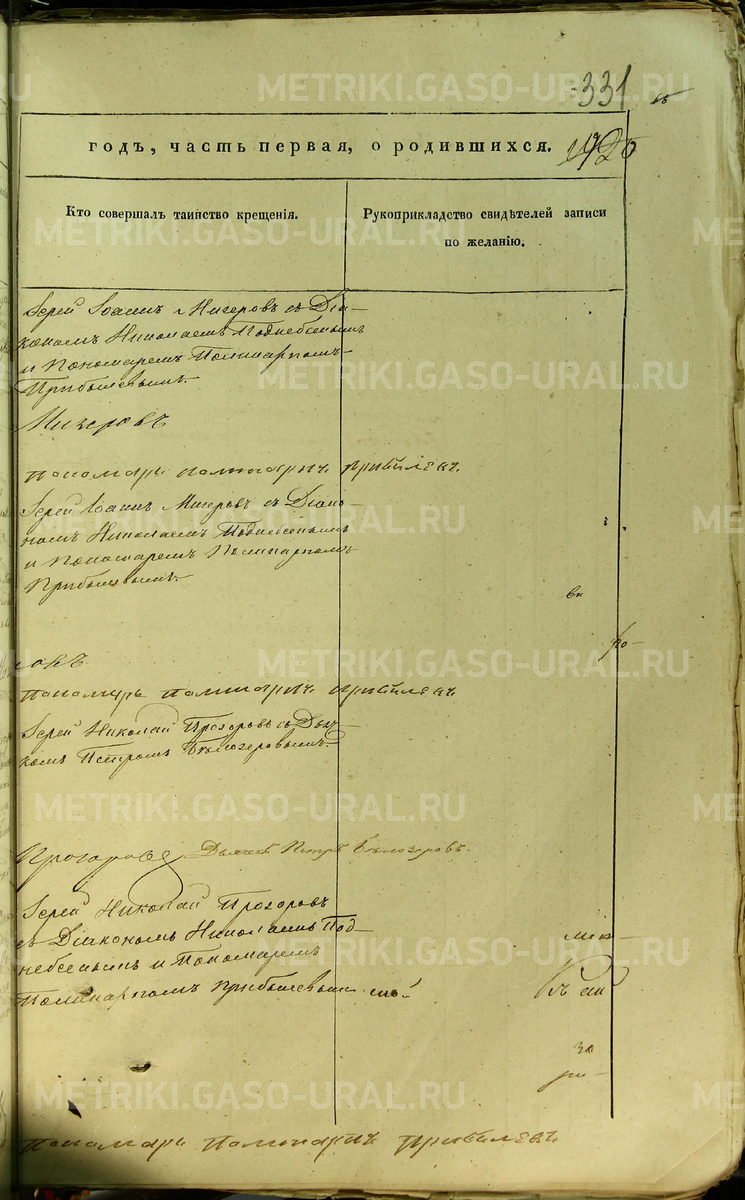 331
годъ, часть первая, о родившихся.
Кто совершалъ таинство крещенія.
Рукоприкладство свидѣтелей записи
по желанію.
Іерей Іоаннъ Мизеровъ съ Діа-
кономъ Николаемъ Поднебеснымъ
и Пономаремъ Поликарпомъ
Прибылевымъ.
Мизеровъ
Пономарь Поликарпъ Прибылевъ.
Іерей Іоаннъ Мизеровъ съ Діако-
номъ Николаемъ Поднебеснымъ
и Пономаремъ Поликарпомъ
Прибылевымъ.
Пономарь Поликарпъ Прибылевъ
Іерей Николай Прозоровъ съ Дьяч-
комъ Петромъ Бѣлозеровымъ.
Прозоровъ Дьячекъ Петръ Бѣлозеровъ.
Іерей Николай Прозоровъ
съ Діакономъ Николаемъ Под-
небеснымъ и Пономаремъ
Поликарпомъ Прибылевым
Пономарь Поликарпъ Прибылевъ
METRIKI.GASO-URAL.RU